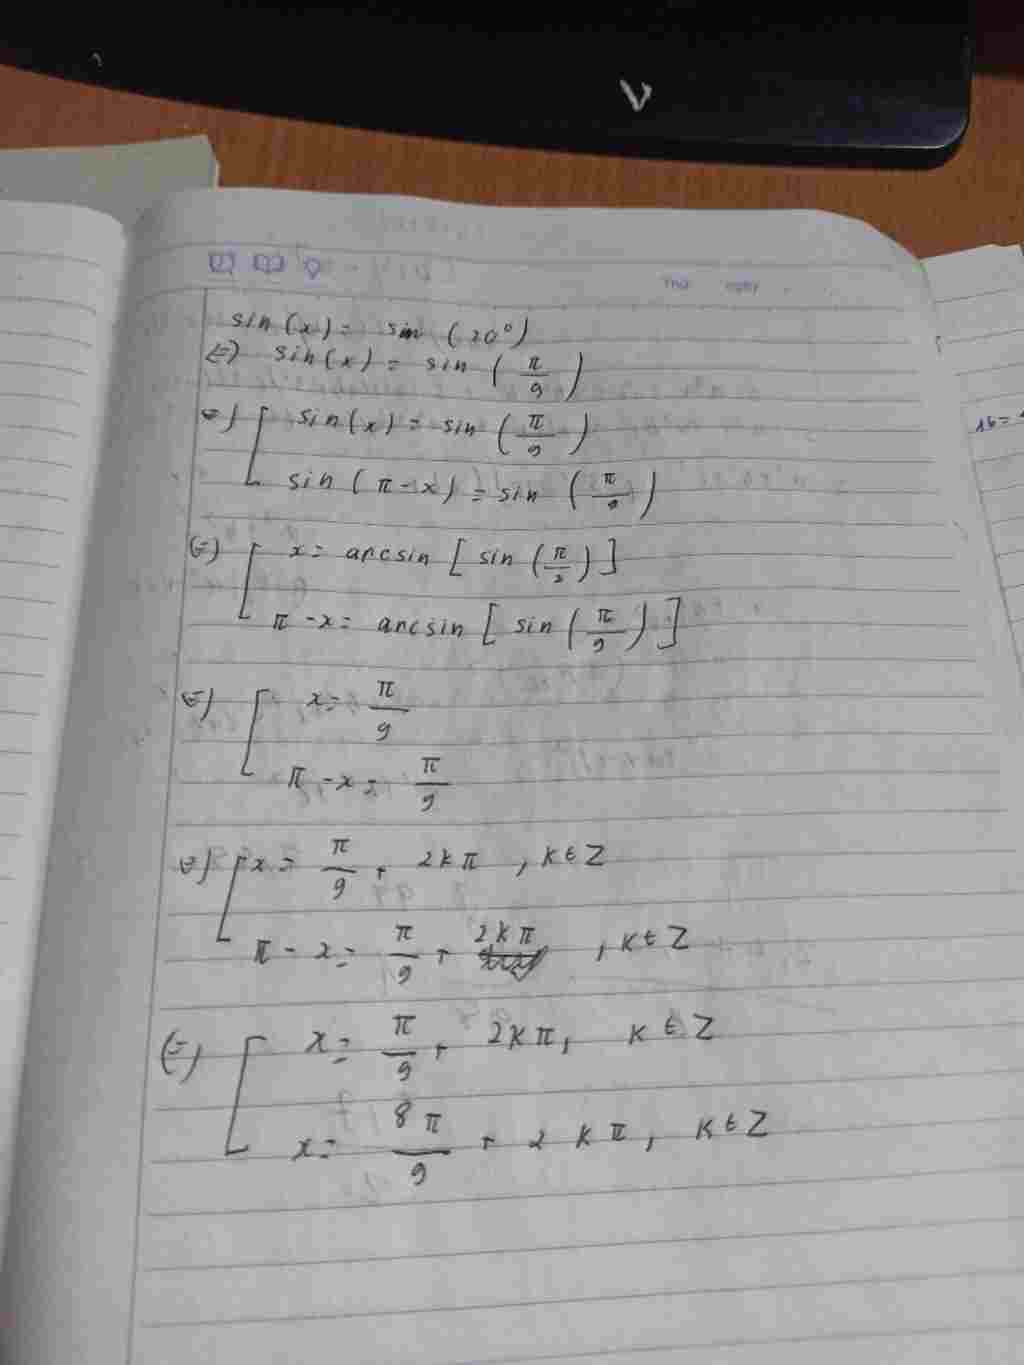 sin(x) = sin (20°)
⇔) sin(x) = sin (π/9)
⇔) [ sin(x) = sin (π/9)
sin (π-x) = sin (π/9)
⇔) [ x = arcsin [ sin (π/9) ]
π - x = arcsin [ sin (π/9) ]
⇔) [ x = π/9
π - x = π/9
⇔) [ x = π/9 + 2kπ , k ∈ Z
π - x = π/9 + 2kπ , k ∈ Z
⇔) [ x = π/9 + 2kπ, k ∈ Z
x = 8π/9 + 2kπ, k ∈ Z